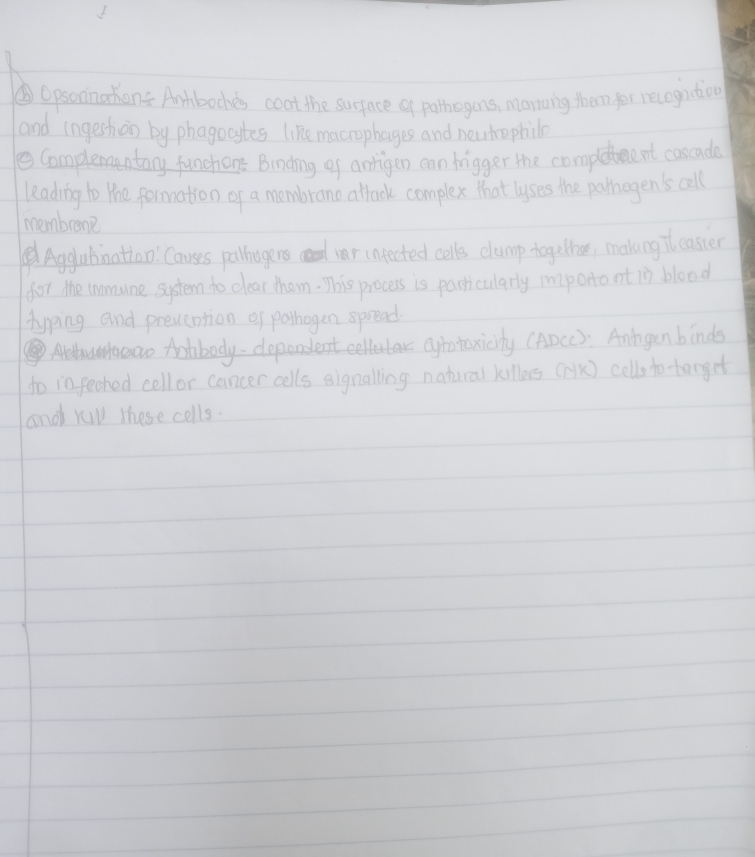 (b) Opsorination: Antibodies coat the surface of pathogens, marking them for recognition
and ingestion by phagocytes like macrophages and neutrophils
(c) Complementary function: Binding of antigen can trigger the complement cascade
leading to the formation of a membrane attack complex that lyses the pathogen's cell
membrane
(d) Agglutination: Causes pathogens or infected cells clump together, making it easier
for the immune system to clear them. This process is particularly important in blood
typing and prevention of pathogen spread.
(e) Antibody-dependent cellular cytotoxicity (ADCC): Antigen binds
to infected cell or cancer cells signalling natural killers (NK) cells to target
and kill these cells.